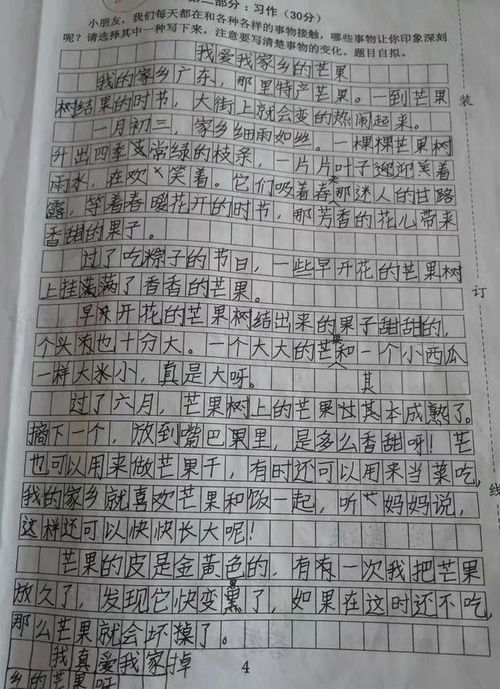 第二部分：习作（30分）
小朋友，我们每天都在和各种各样的事物接触，哪些事物让你印象深刻
呢？请选择其中一种写下来，注意要写清楚事物的变化。题目自拟。
我爱我家乡的芒果
我的家乡广东，那里特产芒果。一到芒果
树结果的时书，大街上就会变的热闹起来。
一月初三，家乡细雨如丝。一棵棵芒果树
升出四季常绿的枝条，一片片叶子迎迎笑着
雨水，在欢笑着。它们吸着春那迷人的甘路
露，等着春暖花开的时书，那芳香的花儿带来
香甜的果子。
过了吃粽子的节日，一些早开花的芒果树
上挂满满了香香的芒果。
早开花的芒果树结出来的果子甜甜的，
个头也十分大。一个大大的芒果和一个小西瓜
一样大小，真是大呀。
其
过了六月，芒果树上的芒果基本成熟了。
摘下一个，放到嘴巴里，是多么香甜呀！芒
也可以用来做芒果干，有时还可以用来当菜吃，
我的家乡就喜欢芒果和饭一起，听妈妈说，
这样还可以快快长大呢！
芒果的皮是金黄色的，有有一次我把芒果
放久了，发现它快变黑了，如果在这时还不吃，
那么芒果就会坏掉了。
我真爱我家掉
乡的芒果呀
4
装
订
线